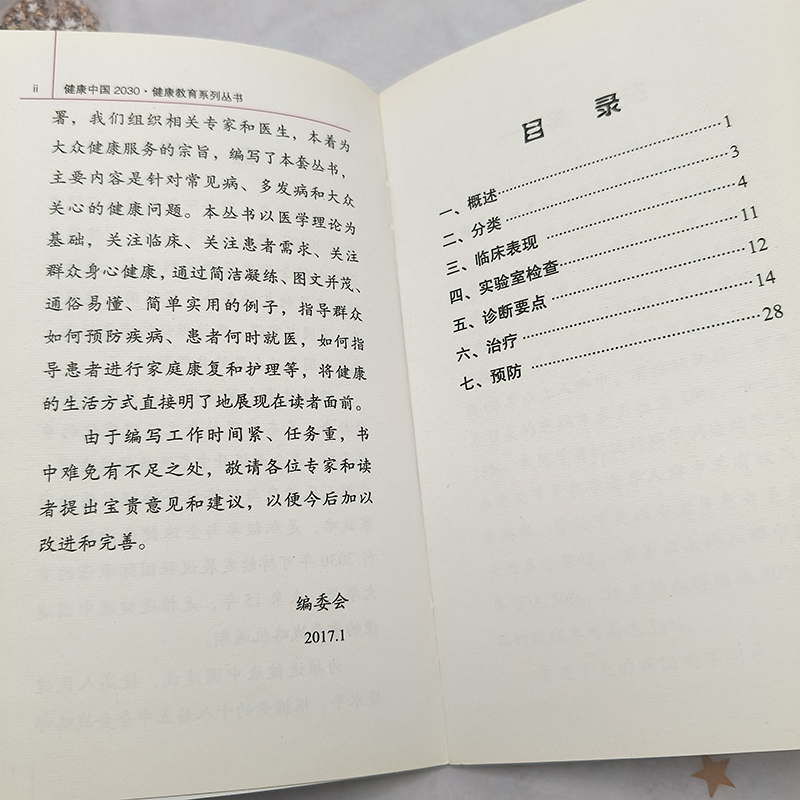 ii 健康中国2030·健康教育系列丛书
署，我们组织相关专家和医生，本着为
大众健康服务的宗旨，编写了本套丛书，
主要内容是针对常见病、多发病和大众
关心的健康问题。本丛书以医学理论为
基础，关注临床、关注患者需求、关注
群众身心健康，通过简洁凝练、图文并茂、
通俗易懂、简单实用的例子，指导群众
如何预防疾病、患者何时就医，如何指
导患者进行家庭康复和护理等，将健康
的生活方式直接明了地展现在读者面前。
由于编写工作时间紧、任务重，书
中难免有不足之处，敬请各位专家和读
者提出宝贵意见和建议，以便今后加以
改进和完善。
编委会
2017.1
目 录
一、概述……………………………1
二、分类……………………………3
三、临床表现………………………4
四、实验室检查……………………11
五、诊断要点………………………12
六、治疗……………………………14
七、预防……………………………28